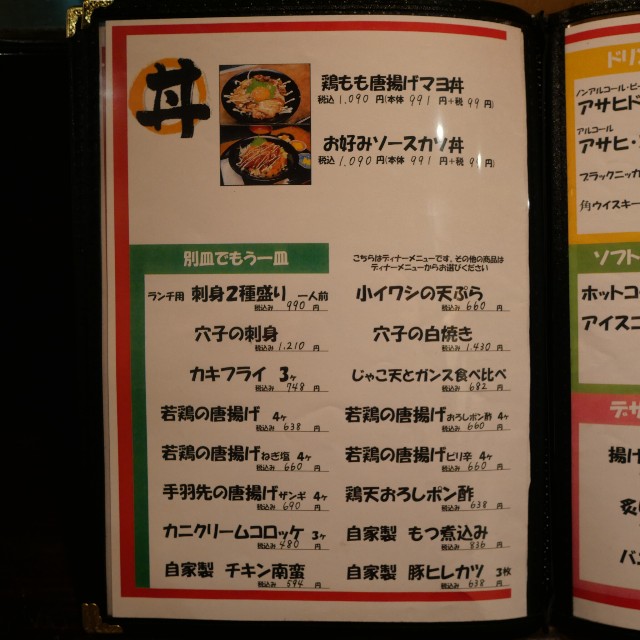 丼
鶏もも唐揚げマヨ丼
税込 1,090 円(本体 991 円+税 99 円)
お好みソースカツ丼
税込 1,090 円(本体 991 円+税 99 円)
別皿でもう一皿
こちらはディナーメニューです。その他の商品は
ディナーメニューからお選びください
ランチ用 刺身2種盛り 一人前
税込み 990 円
小イワシの天ぷら
税込み 660 円
穴子の刺身
税込み 1,210 円
穴子の白焼き
税込み 1,430 円
カキフライ 3ヶ
税込み 748 円
じゃこ天とガンス食べ比べ
税込み 682 円
若鶏の唐揚げ 4ヶ
税込み 638 円
若鶏の唐揚げおろしポン酢 4ヶ
税込み 660 円
若鶏の唐揚げねぎ塩 4ヶ
税込み 660 円
若鶏の唐揚げピリ辛 4ヶ
税込み 660 円
手羽先の唐揚げザンギ 4ヶ
税込み 690 円
鶏天おろしポン酢
税込み 638 円
カニクリームコロッケ 3ヶ
税込み 480 円
自家製 もつ煮込み
税込み 836 円
自家製 チキン南蛮
税込み 594 円
自家製 豚ヒレカツ 3枚
税込み 638 円
ドリン
ノンアルコール・ビー
アサヒド
アルコール
アサヒ・
ブラックニッカ
角ウイスキー
ソフト
ホットコー
アイスコ
デザ
揚げ
炙り
バニ